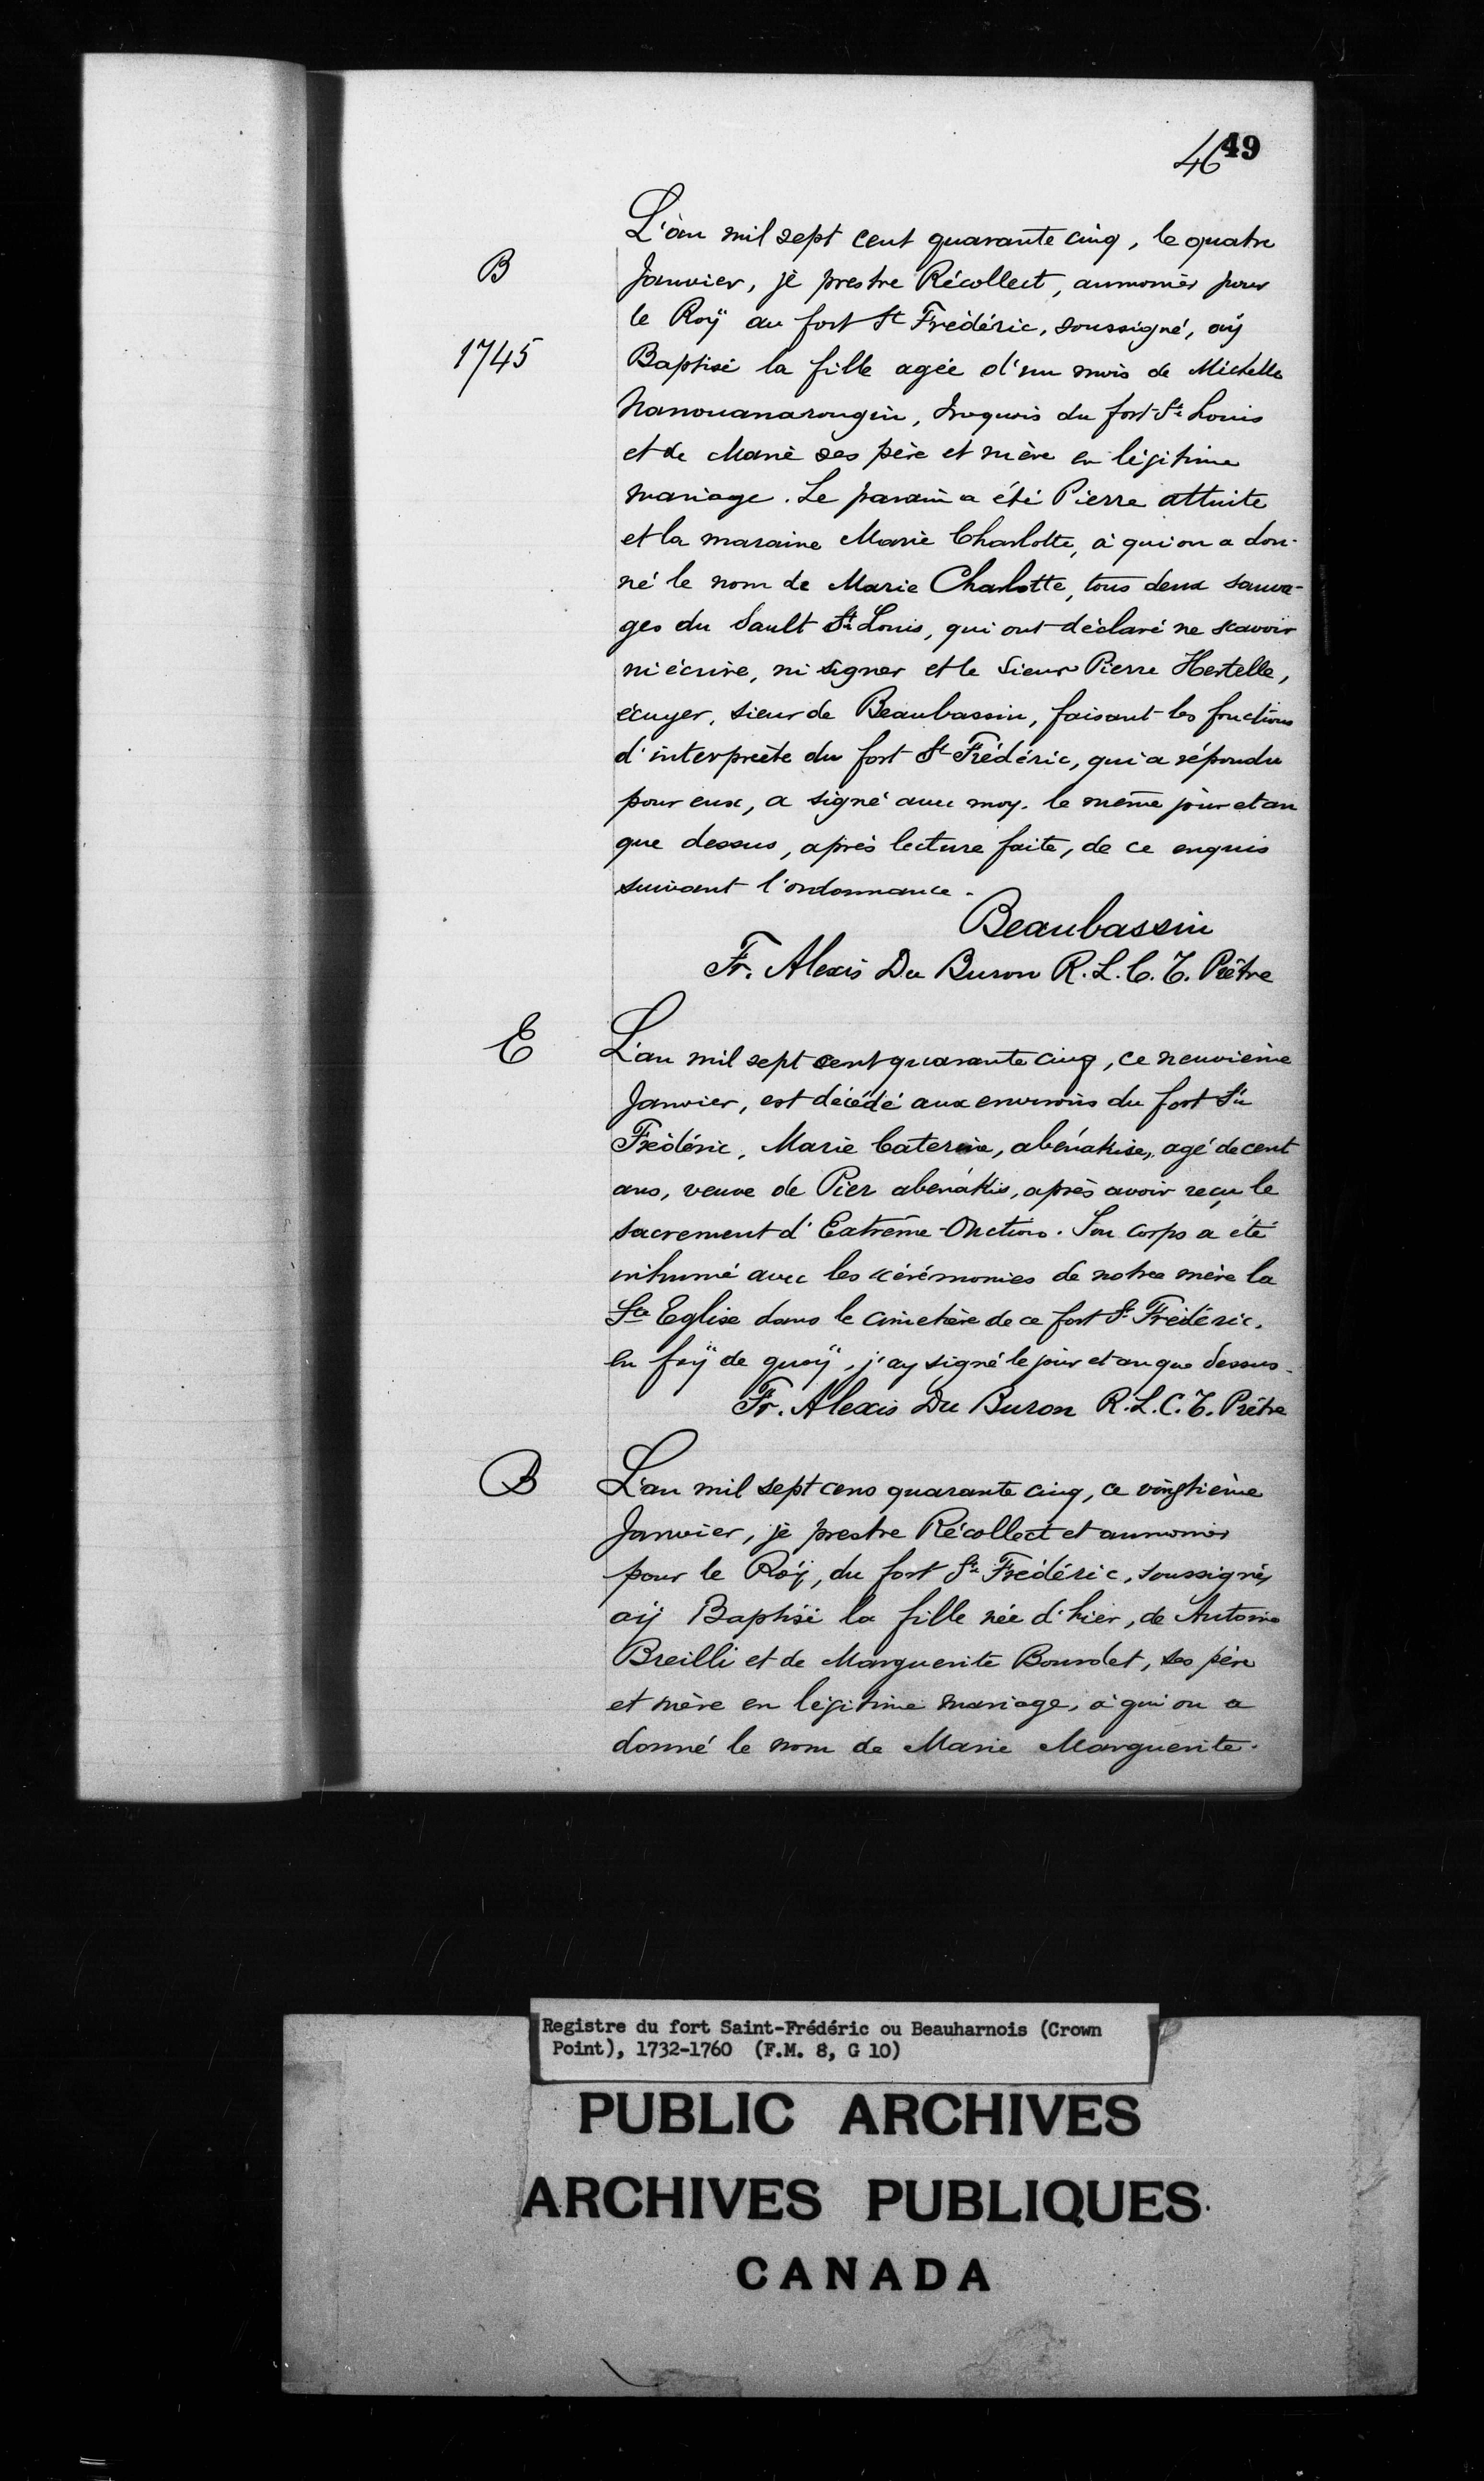 46 49
L'an mil sept cent quarante cinq, le quatre
B
Janvier, je prestre Récollect, aumonier pour
le Roÿ au fort St Frédéric, soussigné, aÿ
1745
Baptisé la fille agée d'un mois de Michelle
Nanouanarougin, Iroquois du fort St Louis
et de Marie ses père et mère en légitime
mariage. Le parain a été Pierre attuite
et la maraine Marie Charlotte, à qui on a don-
né le nom de Marie Charlotte, tous deux sauva-
ges du Sault St Louis, qui ont déclaré ne scavoir
ni écrire, ni signer et le Sieur Pierre Hertelle,
écuyer, sieur de Beaubassin, faisant les fonctions
d'interprète du fort St Frédéric, qui a répondu
pour eux, a signé avec moy. le même jour et an
que dessus, après lecture faite, de ce enquis
suivant l'ordonnance.
Beaubassin
Fr. Alexis Du Buron R.L.C.T. Prêtre
E
L'an mil sept cent quarante cinq, ce neuvième
Janvier, est décédé aux environs du fort St
Frédéric, Marie Caterine, abénakise, agé de cent
ans, veuve de Pier abenakis, après avoir reçu le
sacrement d'Extrême-Onction. Son corps a été
inhumé avec les cérémonies de notre mère la
Ste Eglise dans le cimetière de ce fort St Frédéric.
en foÿ de quoÿ, j'ay signé le jour et an que dessus.
Fr. Alexis Du Buron R.L.C.T. Prêtre
B
L'an mil sept cens quarante cinq, ce vingtième
Janvier, je prestre Récollect et aumonier
pour le Roÿ, du fort St Frédéric, soussigné,
aÿ Baptisé la fille née d'hier, de Antoine
Breilli et de Marguerite Bourdet, ses père
et mère en légitime mariage, à qui on a
donné le nom de Marie Marguerite.
Registre du fort Saint-Frédéric ou Beauharnois (Crown
Point), 1732-1760 (F.M. 8, G 10)
PUBLIC ARCHIVES
ARCHIVES PUBLIQUES
CANADA